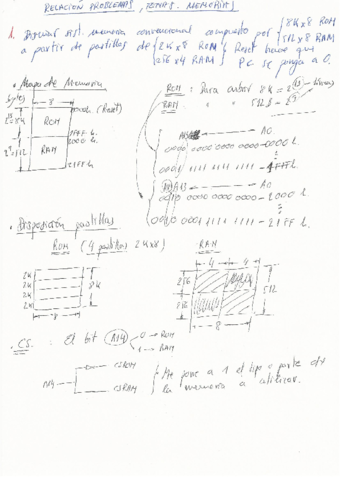 RELACIÓN PROBLEMAS, TEMAS: MEMORIAS
1. Dibujar sist. memoria convencional compuesto por { 8K x 8 ROM
512 x 8 RAM
a partir de pastillas de { 2K x 8 ROM
256 x 4 RAM } Reset hace que PC se ponga a 0.
· Mapa de Memoria
ROM : Para cubrir 8K = 2
RAM " " 512 = 2
8
ROM
RAM
(Reset)
1FFF h.
2000 h.
21FF h.
A0
0000 0000 0000 0000 - 0000 h.
0001 1111 1111 1111 - 1FFF h.
A0
0000 0000 0000 - 2000 h.
0001 1111 1111 - 21FF h.
· Disposición pastillas
ROM (4 pastillas 2Kx8)
RAM
2K
2K
2K
2K
8K
8
4 4
256
256
512
8
· CS: El bit A14 0 → ROM
1 → RAM
A14
CSROM
CSRAM
Me pone a 1 el tipo o parte de
la memoria a utilizar.